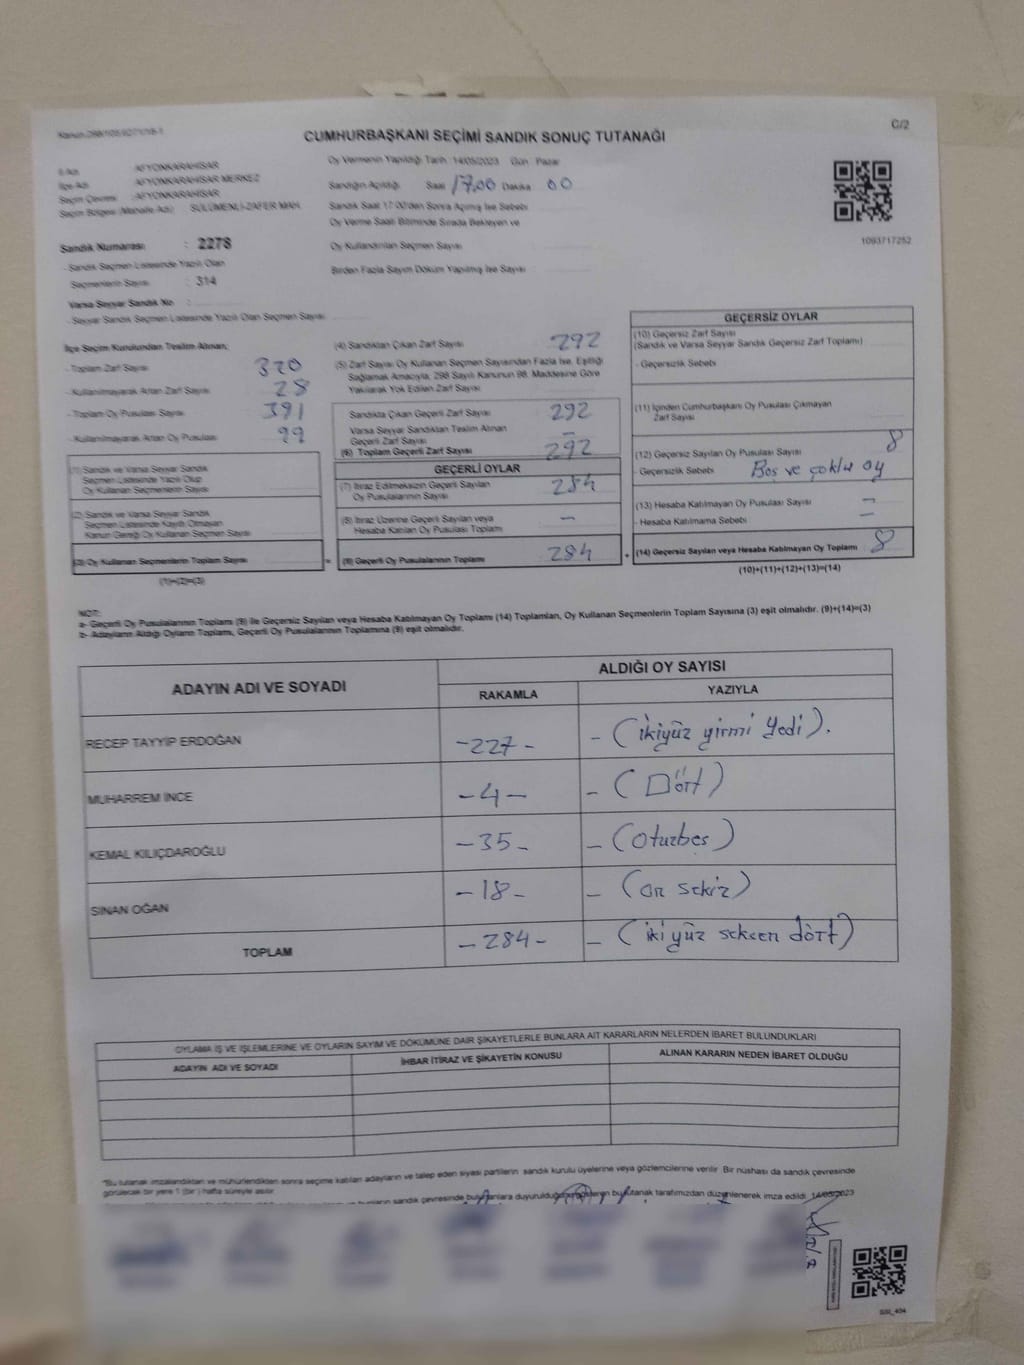 CUMHURBAŞKANI SEÇİMİ SANDIK SONUÇ TUTANAĞI
C/2
İli Adı : AFYONKARAHİSAR
İlçe Adı : AFYONKARAHİSAR MERKEZ
Seçim Çevresi : AFYONKARAHİSAR
Seçim Bölgesi (Mahalle Adı) : SÜLÜMENLİ-ZAFER MAH.
Sandık Numarası : 2278
- Sandık Seçmen Listesinde Yazılı Olan
Seçmenlerin Sayısı : 314
Varsa Seyyar Sandık No :
- Seyyar Sandık Seçmen Listesinde Yazılı Olan Seçmen Sayısı
Oy Vermenin Yapıldığı Tarih : 14/05/2023 Gün : Pazar
Sandığın Açıldığı Saat 17,00 Dakika 00
Sandık Saat 17:00'den Sonra Açılmış İse Sebebi
Oy Verme Saati Bitiminde Sırada Bekleyen ve
Oy Kullandırılan Seçmen Sayısı
Birden Fazla Sayım Döküm Yapılmış İse Sayısı
1093717252
İlçe Seçim Kurulundan Teslim Alınan;
- Toplam Zarf Sayısı 320
- Kullanılmayarak Artan Zarf Sayısı 28
- Toplam Oy Pusulası Sayısı 391
- Kullanılmayarak Artan Oy Pusulası 99
(1) Sandık ve Varsa Seyyar Sandık
Seçmen Listesinde Yazılı Olup
Oy Kullanan Seçmenlerin Sayısı
(2) Sandık ve Varsa Seyyar Sandık
Seçmen Listesinde Kayıtlı Olmayan
Kanun Gereği Oy Kullanan Seçmen Sayısı
(3) Oy Kullanan Seçmenlerin Toplam Sayısı
(1)+(2)=(3)
(4) Sandıktan Çıkan Zarf Sayısı 292
(5) Zarf Sayısı Oy Kullanan Seçmen Sayısından Fazla İse, Eşitliği
Sağlamak Amacıyla, 298 Sayılı Kanunun 98. Maddesine Göre
Yakılarak Yok Edilen Zarf Sayısı
Sandıkta Çıkan Geçerli Zarf Sayısı 292
Varsa Seyyar Sandıktan Teslim Alınan
Geçerli Zarf Sayısı –
(6) Toplam Geçerli Zarf Sayısı 292
GEÇERLİ OYLAR
(7) İtiraz Edilmeksizin Geçerli Sayılan
Oy Pusulalarının Sayısı 284
(8) İtiraz Üzerine Geçerli Sayılan veya
Hesaba Katılan Oy Pusulası Toplamı –
= (9) Geçerli Oy Pusulalarının Toplamı 284
GEÇERSİZ OYLAR
(10) Geçersiz Zarf Sayısı
(Sandık ve Varsa Seyyar Sandık Geçersiz Zarf Toplamı)
- Geçersizlik Sebebi
(11) İçinden Cumhurbaşkanı Oy Pusulası Çıkmayan
Zarf Sayısı
(12) Geçersiz Sayılan Oy Pusulası Sayısı 8
- Geçersizlik Sebebi Boş ve çoklu oy
(13) Hesaba Katılmayan Oy Pusulası Sayısı –
- Hesaba Katılmama Sebebi –
+ (14) Geçersiz Sayılan veya Hesaba Katılmayan Oy Toplamı 8
(10)+(11)+(12)+(13)=(14)
NOT:
a- Geçerli Oy Pusulalarının Toplamı (9) ile Geçersiz Sayılan veya Hesaba Katılmayan Oy Toplamı (14) Toplamları, Oy Kullanan Seçmenlerin Toplam Sayısına (3) eşit olmalıdır. (9)+(14)=(3)
b- Adayların Aldığı Oyların Toplamı, Geçerli Oy Pusulalarının Toplamına (9) eşit olmalıdır.
ADAYIN ADI VE SOYADI
ALDIĞI OY SAYISI
RAKAMLA YAZIYLA
RECEP TAYYİP ERDOĞAN -227- - (ikiyüz yirmi yedi).
MUHARREM İNCE -4- - (Dört)
KEMAL KILIÇDAROĞLU -35- - (Otuzbeş)
SİNAN OĞAN -18- - (on sekiz)
TOPLAM -284- - (ikiyüz seksen dört)
OYLAMA İŞ VE İŞLEMLERİNE VE OYLARIN SAYIM VE DÖKÜMÜNE DAİR ŞİKAYETLERLE BUNLARA AİT KARARLARIN NELERDEN İBARET BULUNDUKLARI
ADAYIN ADI VE SOYADI İHBAR İTİRAZ VE ŞİKAYETİN KONUSU ALINAN KARARIN NEDEN İBARET OLDUĞU
"Bu tutanak imzalandıktan ve mühürlendikten sonra seçime katılan adayların ve talep eden siyasi partilerin sandık kurulu üyelerine veya gözlemcilerine verilir. Bir nüshası da sandık çevresinde
görülecek bir yere 1 (bir) hafta süreyle asılır.
sandık çevresinde bulunanlara duyurulduğunu gösteren bu tutanak tarafımızdan düzenlenerek imza edildi. 14/05/2023